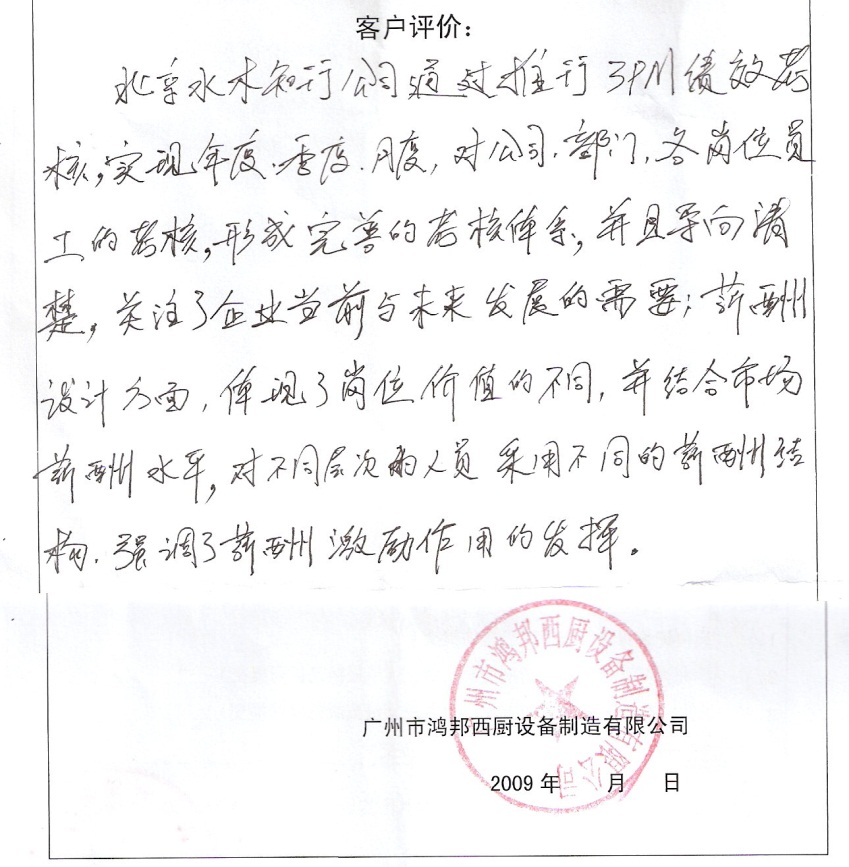 客户评价：
北京水木知行公司通过推行3PM绩效考
核，实现年度、季度、月度，对公司、部门、各岗位员
工的考核，形成完善的考核体系，并且导向清
楚，关注了企业当前与未来发展的需要；薪酬
设计方面，体现了岗位价值的不同，并结合市场
薪酬水平，对不同层次的人员采用不同的薪酬结
构，强调了薪酬激励作用的发挥。
广州市鸿邦西厨设备制造有限公司
广州市鸿邦西厨设备制造有限公司
2009 年 月 日